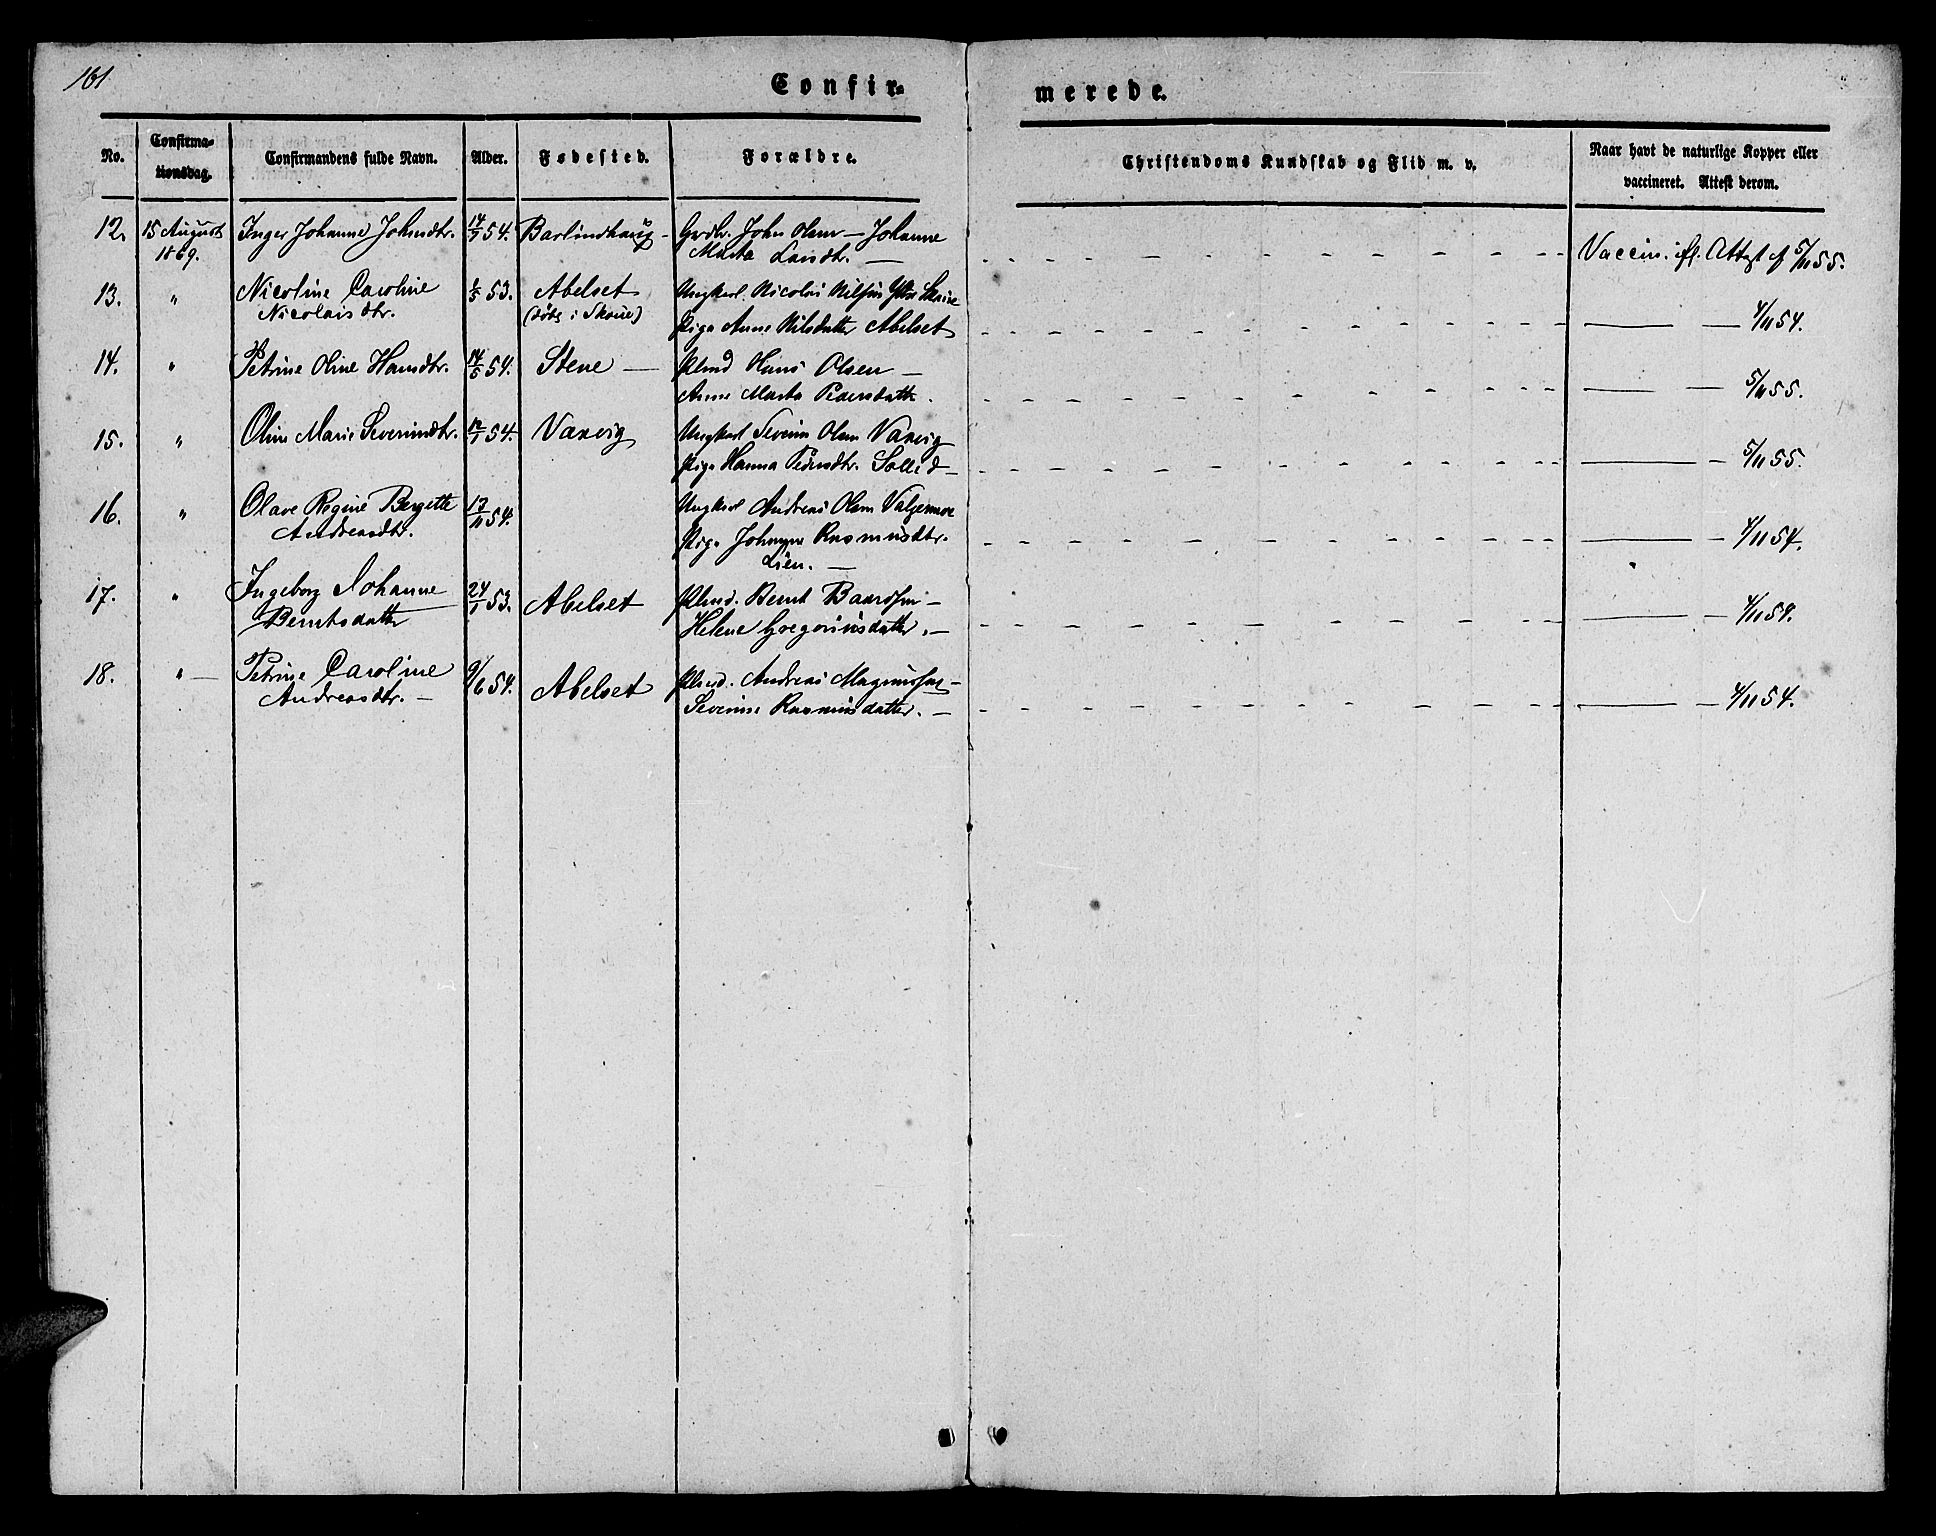 161
Confir-
merede.
No.
Confirma-
tionsdag.
Confirmandens fulde Navn.
Alder.
Fødested.
Forældre.
Christendoms Kundskab og Flid m. v.
Naar havt de naturlige Kopper eller
vaccineret. Attest derom.
12. 15 August Inger Johanne Johnsdtr. 14/7 54. Barlindhaug - Grdbr. John Olsen — Johanne
1869. Marta Larsdtr. — Vaccin. ifl. Attest af 5/11 55.
13. " Nicoline Caroline 53. Abelset Ungkarl Nicolai Nilsen Ytre Skeie
Nicolaisdtr. (døbt i Skeie) Pige Anne Nilsdatter Abelset 4/11 54.
14. " Petrine Oline Hansdtr. 14/5 54. Stene — Hmd Hans Olsen —
Anne Marta Pedersdatter. 5/11 55.
15. " Oline Marie Severinsdtr. 12/7 54. Vaxvig Ungkarl Severin Olsen Vaxvig
Pige Hanna Pedersdtr. Sollid — 5/11 55.
16. " Olave Regine Bergette 13/11 54. Ungkarl Andreas Olsen Valgermoe
Andreasdtr. Pige Johanne Rasmusdtr.
Lien. — 4/11 54.
17. " Ingeborg Johanne 24/1 53. Abelset Hmd. Bernt Baardsen —
Berntsdatter Helene Gregoriusdatter. — 4/11 54.
18. " — Petrine Caroline 9/6 54. Abelset Hmd. Andreas Magnussen —
Andreasdtr. — Severine Rasmusdatter. — 4/11 54.